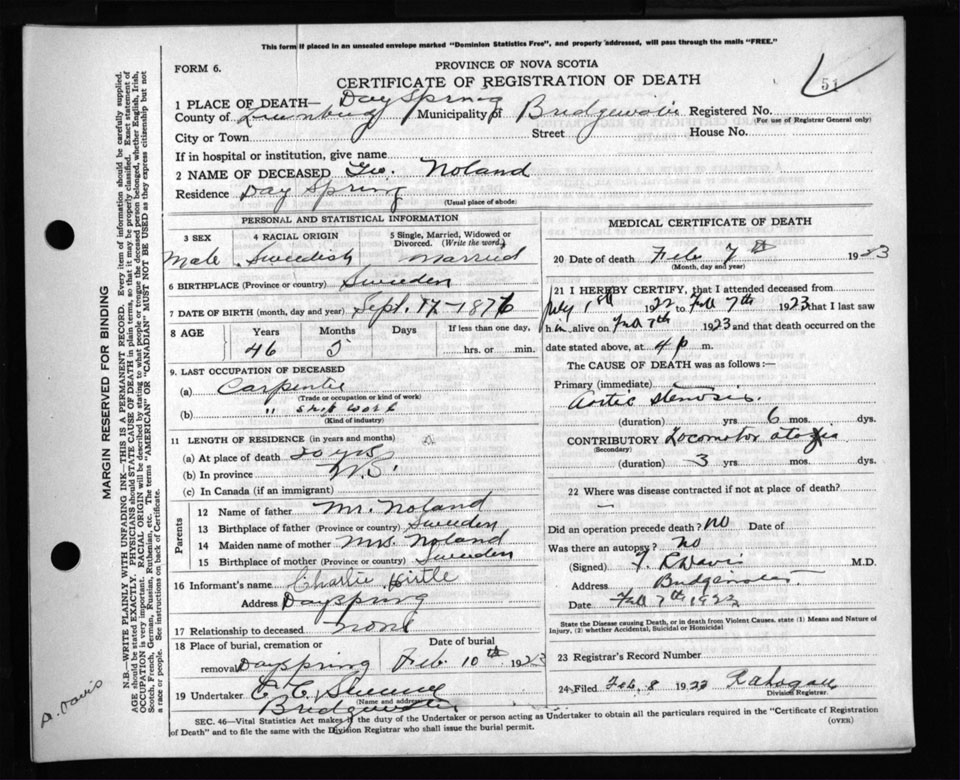 This form if placed in an unsealed envelope marked "Dominion Statistics Free", and properly addressed, will pass through the mails "FREE."
FORM 6.
PROVINCE OF NOVA SCOTIA
CERTIFICATE OF REGISTRATION OF DEATH
51
1 PLACE OF DEATH— Day Spring
County of Lunenburg Municipality of Bridgewater Registered No.
(For use of Registrar General only)
City or Town Street House No.
If in hospital or institution, give name
2 NAME OF DECEASED Geo. Noland
Residence Day Spring
(Usual place of abode)
PERSONAL AND STATISTICAL INFORMATION
3 SEX 4 RACIAL ORIGIN 5 Single, Married, Widowed or Divorced. (Write the word)
Male Swedish Married
6 BIRTHPLACE (Province or country) Sweden
7 DATE OF BIRTH (month, day and year) Sept. 17-1876
8 AGE Years Months Days If less than one day,
46 5 hrs. or min.
9. LAST OCCUPATION OF DECEASED
(a) Carpenter
(Trade or occupation or kind of work)
(b) " ship work
(Kind of industry)
11 LENGTH OF RESIDENCE (in years and months)
(a) At place of death 20 yrs
(b) In province N.S.
(c) In Canada (if an immigrant)
Parents
12 Name of father Mr. Noland
13 Birthplace of father (Province or country) Sweden
14 Maiden name of mother Mrs. Noland
15 Birthplace of mother (Province or country) Sweden
16 Informant's name Charlie Hirtle
Address Dayspring
17 Relationship to deceased none
18 Place of burial, cremation or removal Dayspring
Date of burial Feb. 10th 1923
19 Undertaker C. C.
(Name and address)
Bridgewater
MEDICAL CERTIFICATE OF DEATH
20 Date of death Feb 7th 1923
(Month, day and year)
21 I HEREBY CERTIFY, that I attended deceased from
July 1st 1922 to Feb 7th 1923 that I last saw
him alive on Feb 7th 1923 and that death occurred on the
date stated above, at 4 p m.
The CAUSE OF DEATH was as follows:
Primary (immediate)
Aortic stenosis.
(duration) yrs. 6 mos. dys.
CONTRIBUTORY Locomotor ataxia
(Secondary)
(duration) 3 yrs mos. dys.
22 Where was disease contracted if not at place of death?
—
Did an operation precede death? no Date of
Was there an autopsy? no
(Signed) F. R Davis M.D.
Address Bridgewater
Date Feb 7th 1923
State the Disease causing Death, or in death from Violent Causes. state (1) Means and Nature of Injury, (2) whether Accidental, Suicidal or Homicidal
23 Registrar's Record Number
24 Filed Feb. 8 1923
Division Registrar.
SEC. 46—Vital Statistics Act makes it the duty of the Undertaker or person acting as Undertaker to obtain all the particulars required in the "Certificate of Registration of Death" and to file the same with the Division Registrar who shall issue the burial permit.
(OVER)
MARGIN RESERVED FOR BINDING
N.B.—WRITE PLAINLY WITH UNFADING INK—THIS IS A PERMANENT RECORD. Every item of information should be carefully supplied.
AGE should be stated EXACTLY. PHYSICIANS should STATE CAUSE OF DEATH in plain terms, so that it may be properly classified. Exact statement of
OCCUPATION is very important. RACIAL ORIGIN will be described by stating to what people or tongue the deceased person belonged, whether English, Irish,
Scotch, French, German, Russian, Ruthenian, etc. The terms "AMERICAN" OR "CANADIAN" MUST NOT BE USED as they express citizenship but not
a race or people. See instructions on back of Certificate.
Davis